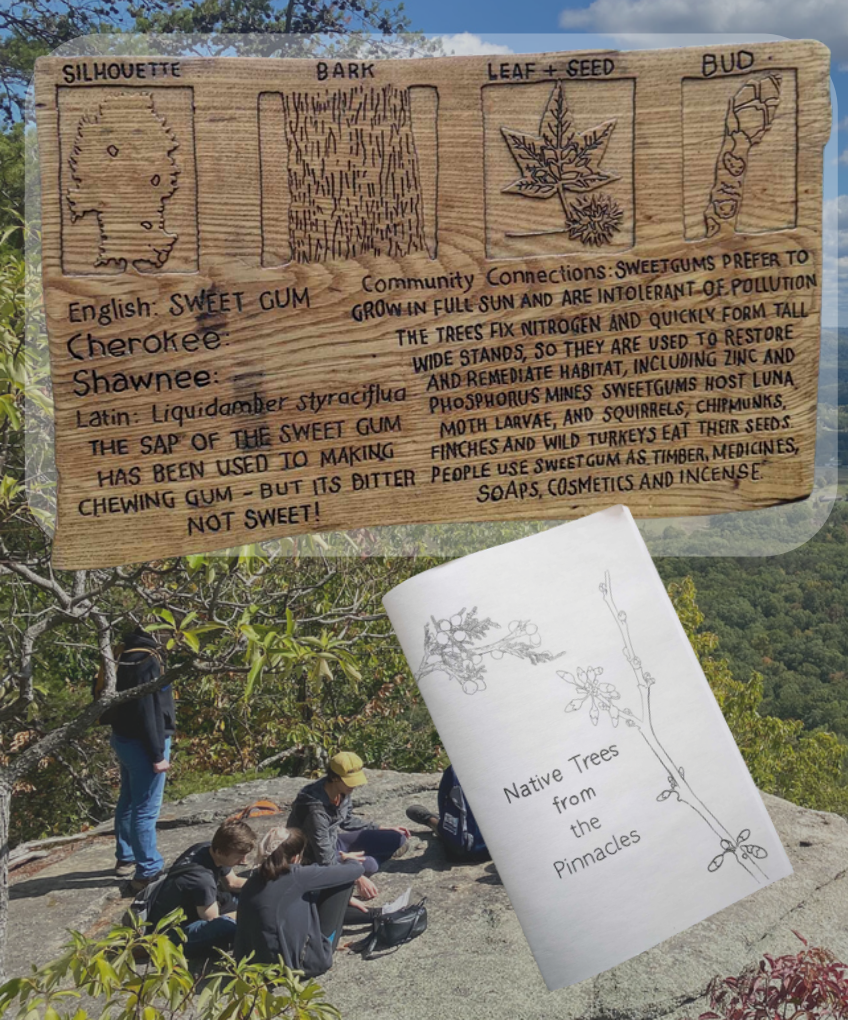 SILHOUETTE
BARK
LEAF + SEED
BUD
English: SWEET GUM
Cherokee:
Shawnee:
Latin: Liquidamber styraciflua
THE SAP OF THE SWEET GUM
HAS BEEN USED TO MAKING
CHEWING GUM - BUT ITS BITTER
NOT SWEET!
Community Connections: SWEETGUMS PREFER TO
GROW IN FULL SUN AND ARE INTOLERANT OF POLLUTION
THE TREES FIX NITROGEN AND QUICKLY FORM TALL
WIDE STANDS, SO THEY ARE USED TO RESTORE
AND REMEDIATE HABITAT, INCLUDING ZINC AND
PHOSPHORUS MINES SWEETGUMS HOST LUNA
MOTH LARVAE, AND SQUIRRELS, CHIPMUNKS,
FINCHES AND WILD TURKEYS EAT THEIR SEEDS.
PEOPLE USE SWEETGUM AS TIMBER, MEDICINES,
SOAPS, COSMETICS AND INCENSE.
Native Trees
from
the
Pinnacles